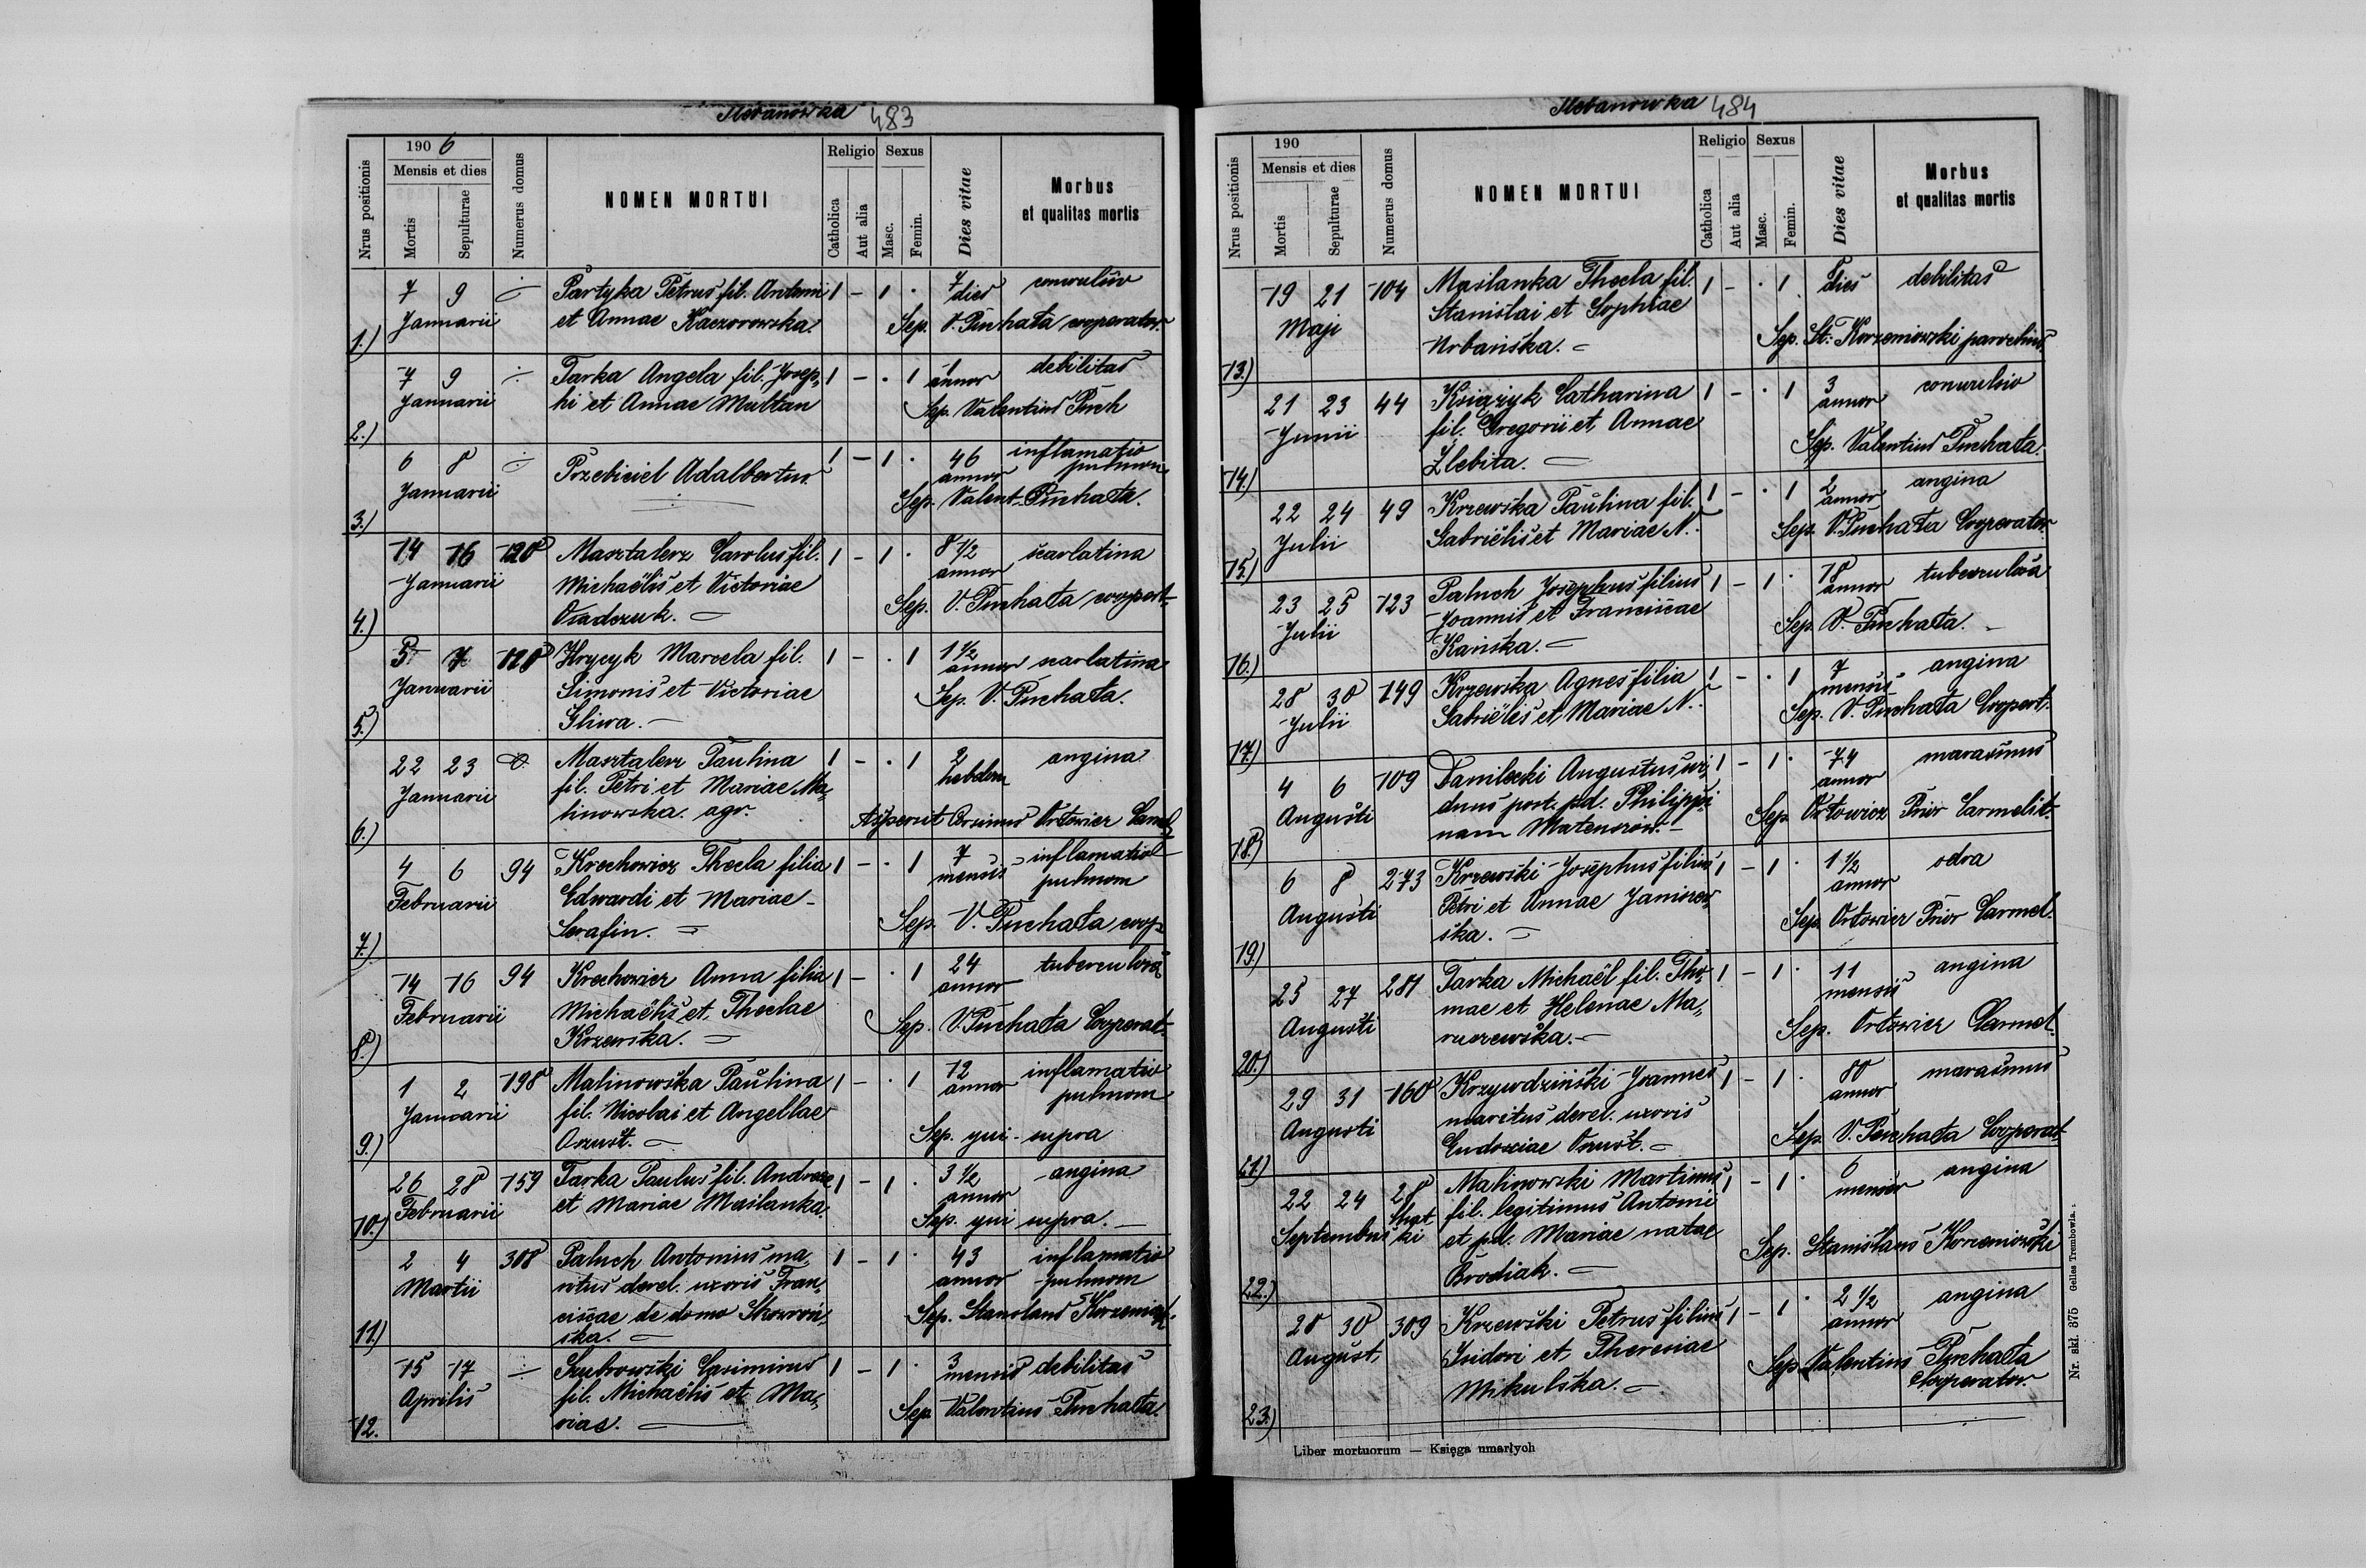 Plebanówka 483
1906
Nrus positionis
Mensis et dies
Mortis
Sepulturae
Numerus domus
NOMEN MORTUI
Religio
Catholica
Aut alia
Sexus
Masc.
Femin.
Dies vitae
Morbus
et qualitas mortis
1.) 7 9 Partyka Petrus fil. Antoni 1 - 1 . 7 convulsio
Januarii et Annae Kaczorowska dies
Sep. V. Puchała cooperator
2.) 7 9 Tarka Angela fil. Josep„ 1 - . 1 1 debilitas
Januarii hi et Annae Multan annor
Sep. Valentius Puch
3.) 6 8 Przebiciel Adalbertus 1 - 1 . 46 inflamatio
Januarii annor pulmon
Sep. Valent. Puchała.
4.) 14 16 128 Masztalerz Carolus fil. 1 - 1 . 8 1/2 scarlatina
Januarii Michaëlis et Victoriae annor
Osadczuk. Sep. V. Puchała coopert.
5.) 5 7 128 Hrycyk Marcela fil. 1 - . 1 1 1/2 scarlatina
Januarii Simonis et Victoriae annor
Gliwa. Sep. V. Puchała.
6.) 22 23 Masztalerz Paulina 1 - . 1 2 angina
Januarii fil. Petri et Mariae Ma„ hebdom
linowska. agr. Ortowicz Carmel
7.) 4 6 94 Krochowicz Thecla filia 1 - . 1 7 inflamatio
Februarii Edwardi et Mariae mensis pulmom
Serafin. Sep. V. Puchała coop.
8.) 14 16 94 Krochowicz Anna filia 1 - . 1 24 tuberculosa
Februarii Michaëlis et Theclae annor
Krzewska. Sep. V. Puchała Cooperat.
9.) 1 2 198 Malinowska Paulina 1 - . 1 12 inflamatio
Januarii fil. Nicolai et Angellae annor pulmom
Orzust. Sep. qui supra
10.) 26 28 159 Tarka Paulus fil. Andreae 1 - 1 . 3 1/2 angina
Februarii et Mariae Maślanka. annor
Sep. qui supra.
11.) 2 4 308 Paluch Antonius ma„ 1 - 1 . 43 inflamatio
Martii ritus derel. uxoris Fran„ annor pulmom
ciscae de domo Skowroń„ Sep. Stanislaus
ska.
12. 15 17 Szubrowski Casimirus 1 - 1 . 3 debilitas
Aprilis fil. Michaëlis et Ma„ mensis
riae. Sep. Valentius Puchała.
Plebanówka 484
190
Nrus positionis
Mensis et dies
Mortis
Sepulturae
Numerus domus
NOMEN MORTUI
Religio
Catholica
Aut alia
Sexus
Masc.
Femin.
Dies vitae
Morbus
et qualitas mortis
13.) 19 21 104 Maslanka Thecla fil. 1 - . 1 8 debilitas
Maji Stanislai et Sophiae dies
Urbańska. Sep. St. Korzeniowski parochus.
14.) 21 23 44 Książyk Catharina 1 - . 1 3 convulsio
Junii fil. Gregorii et Annae annor
Zlebita. Sep. Valentius Puchała.
15.) 22 24 49 Krzewska Paulina fil. 1 - . 1 2 angina
Julii Gabriëlis et Mariae N. annor
Sep. V. Puchała Cooperator
16.) 23 25 123 Paluch Josephus filius 1 - 1 . 18 tuberculosa
Julii Joannis et Franciscae annor
Kańska. Sep. V. Puchała.
17.) 28 30 149 Krzewska Agnes filia 1 - . 1 7 angina
Julii Gabriëlis et Mariae N. mensis
Sep. V. Puchała Coopert.
18.) 4 6 109 Danilecki Augustus vi„ 1 - 1 . 74 marasmus
Augusti duus post p.d. Philippi annor
nam Sep. Ortowicz Prior Carmelit.
19.) 6 8 273 Krzewski Josephus filius 1 - 1 . 1 1/2 odra
Augusti Petri et Annae Janiszew„ annor
ska. Sep. Ortowicz Prior Carmel.
20.) 25 27 281 Tarka Michaël fil. Tho„ 1 - 1 . 11 angina
Augusti mae et Helenae Ma„ mensis
ruszewska. Sep. Ortowicz Carmel.
21.) 29 31 160 Krzywdziński Joannes 1 - 1 . 80 marasmus
Augusti maritus derel. uxoris annor
Eudoxiae Orzust. Sep. V. Puchała Cooperat
22.) 22 24 28 Malinowski Martinus 1 - 1 . 6 angina
Septembris fil. legitimus Antonii mensis
et p.d. Mariae natae Sep. Stanislaus Korzeniowski
Brodiak.
23.) 28 30 309 Krzewski Petrus filius 1 - 1 . 2 1/2 angina
August. Isidori et Theresiae annor
Mikulska. Sep. Valentius Puchała
Cooperator
Liber mortuorum — Księga umarłych
Nr. skł. 375 Gelles Trembowla.